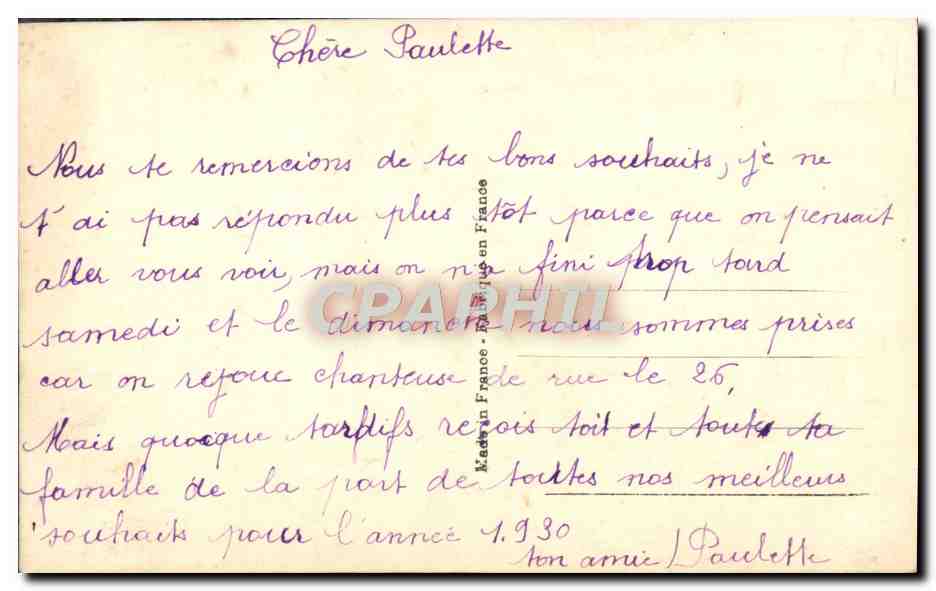 Chère Paulette
Nous te remercions de tes bons souhaits, je ne
t'ai pas répondu plus tôt parce que on pensait
aller vous voir, mais on n'a fini trop tard
samedi et le dimanche nous sommes prises
car on rejoue chanteuse de rue le 26,
Mais quoique tardifs reçois toit et toute ta
famille de la part de toutes nos meilleurs
souhaits pour l'année 1.930
ton amie Paulette
Made in France - Fabriqué en France
CPAPHIL